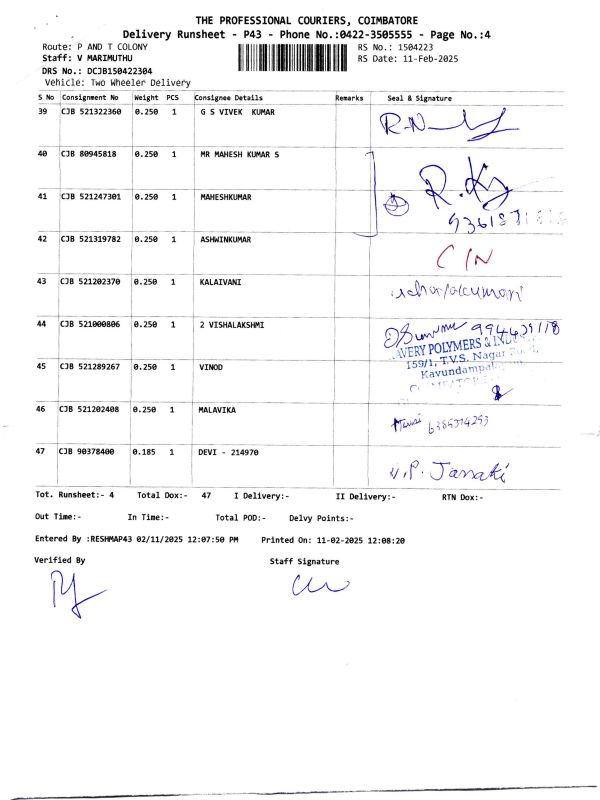 THE PROFESSIONAL COURIERS, COIMBATORE
Delivery Runsheet - P43 - Phone No.:0422-3505555 - Page No.:4
Route: P AND T COLONY RS No.: 1504223
Staff: V MARIMUTHU RS Date: 11-Feb-2025
DRS No.: DCJB150422304
Vehicle: Two Wheeler Delivery
S No Consignment No Weight PCS Consignee Details Remarks Seal & Signature
39 CJB 521322360 0.250 1 G S VIVEK KUMAR
40 CJB 80945818 0.250 1 MR MAHESH KUMAR S
41 CJB 521247301 0.250 1 MAHESHKUMAR
42 CJB 521319782 0.250 1 ASHWINKUMAR C/N
43 CJB 521202370 0.250 1 KALAIVANI
44 CJB 521000806 0.250 1 2 VISHALAKSHMI
AVERY POLYMERS &
159/1, T.V.S. Nagar
45 CJB 521289267 0.250 1 VINOD
46 CJB 521202408 0.250 1 MALAVIKA
47 CJB 90378400 0.185 1 DEVI - 214970 V.P. Janaki
Tot. Runsheet:- 4 Total Dox:- 47 I Delivery:- II Delivery:- RTN Dox:-
Out Time:- In Time:- Total POD:- Delvy Points:-
Entered By :RESHMAP43 02/11/2025 12:07:50 PM Printed On: 11-02-2025 12:08:20
Verified By Staff Signature